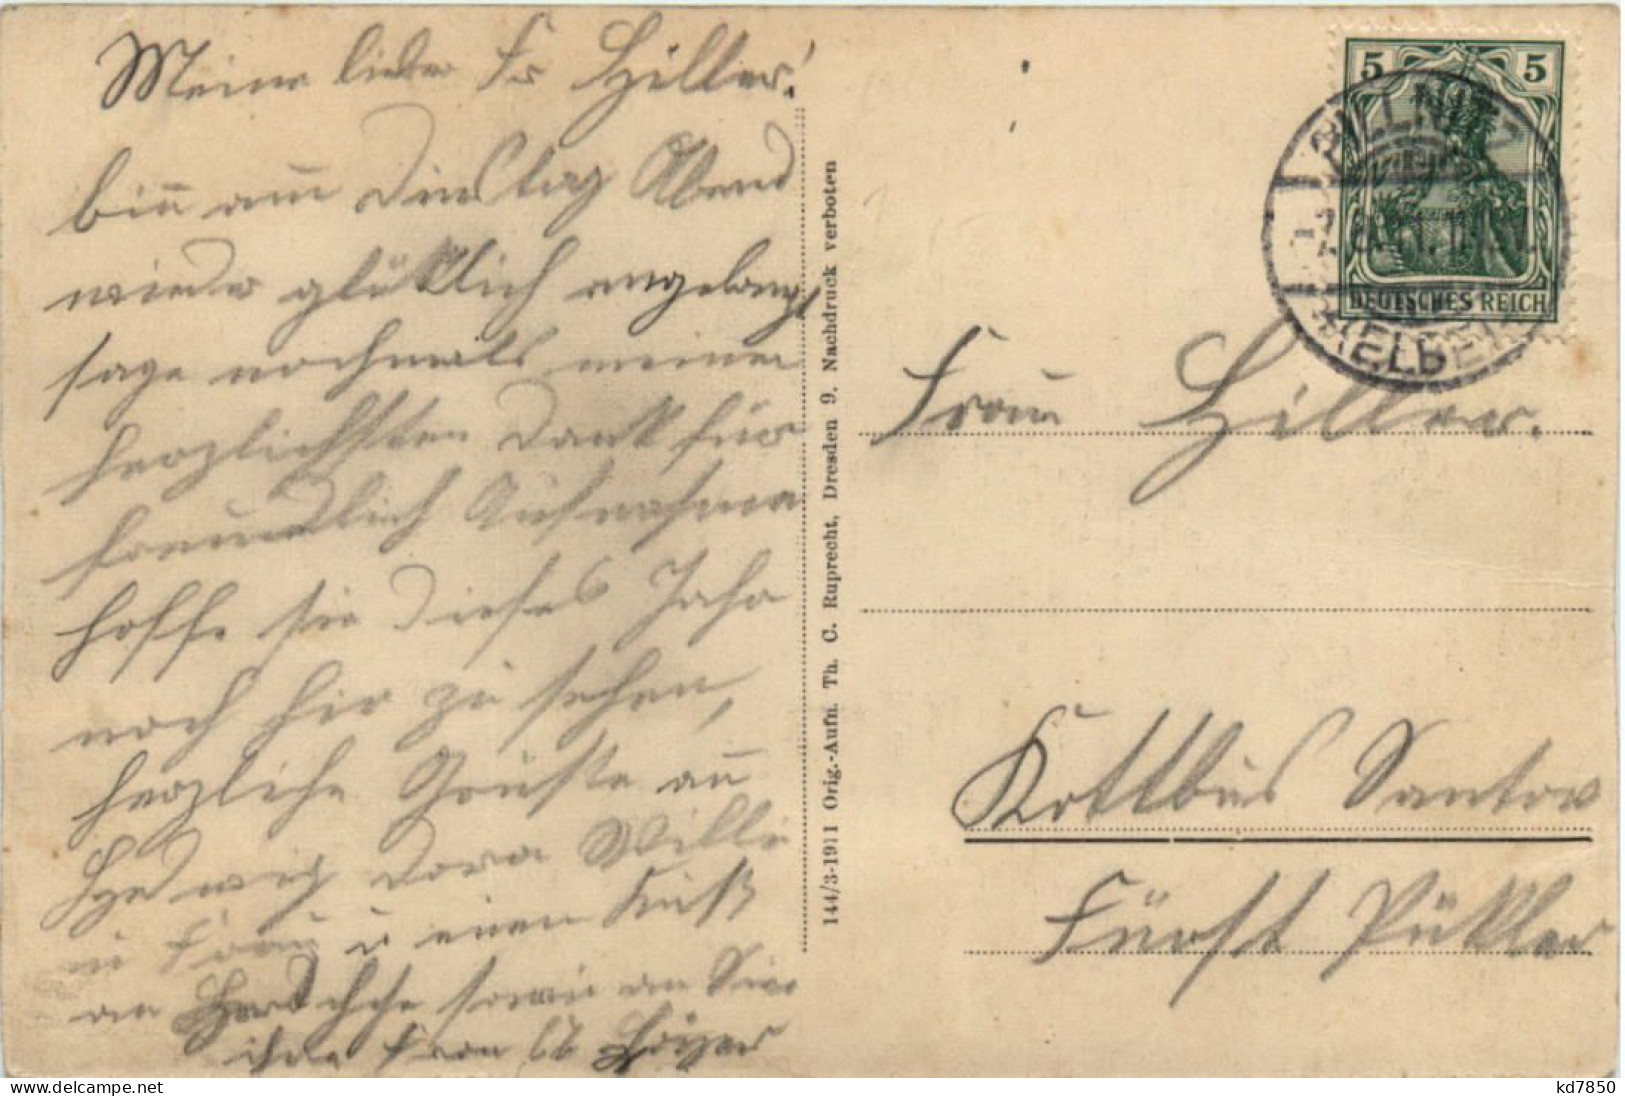 Meine liebe Fr Hiller!
biñ am Dinstag Abend
wieder glüklich angelangt
sage nochmals meinen
herzlichsten Dank für
freundlich Aufnahme
hoffe sie dieses Jahr
noch hir zu sehen,
herzliche Grüße an
Hedwig Dora Willi
u Frau u einen Kuß
an sowie an Sie
ihre Frau
144/3-1911 Orig.-Aufn. Th. C. Ruprecht, Dresden 9. Nachdruck verboten
5 5
DEUTSCHES REICH
PILLNITZ
Frau Hiller.
Kottbus Santow
Fürst Pükler
delcampe.net
kd7850